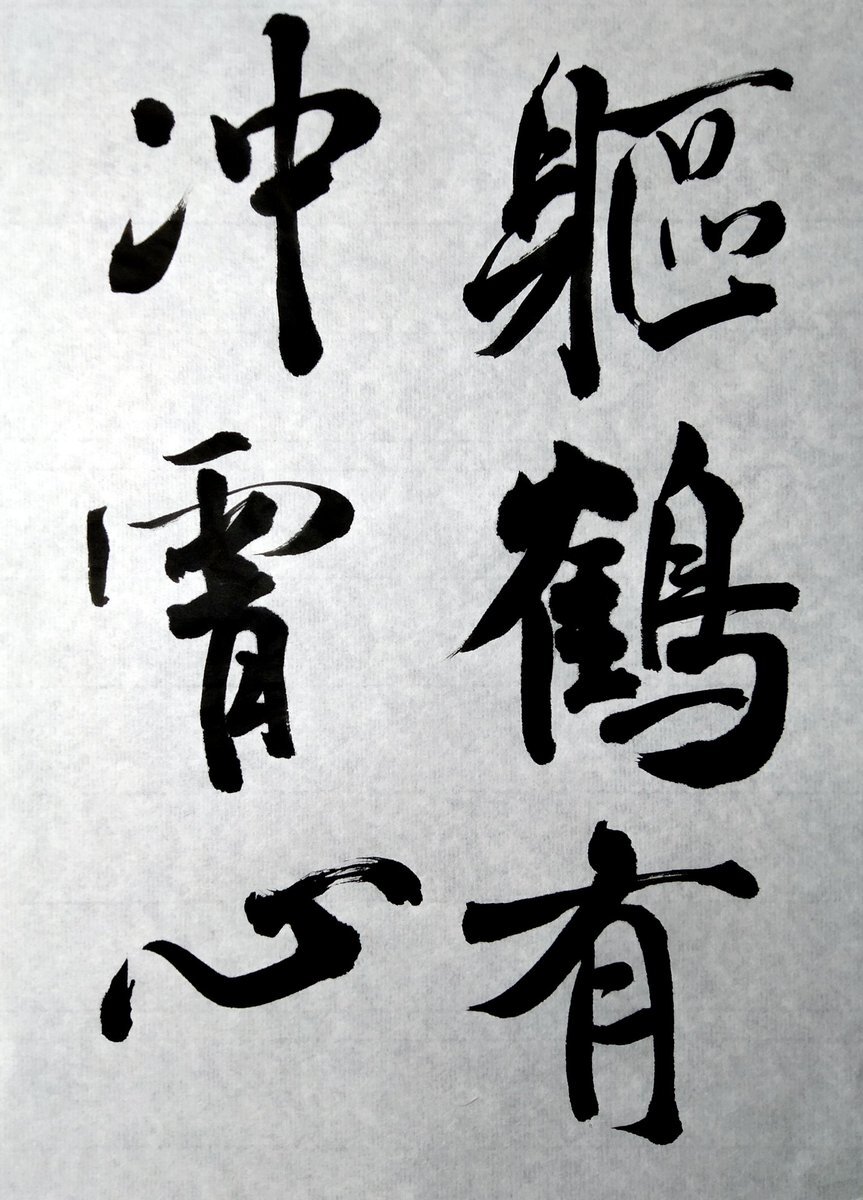 軀鶴有
冲霄心